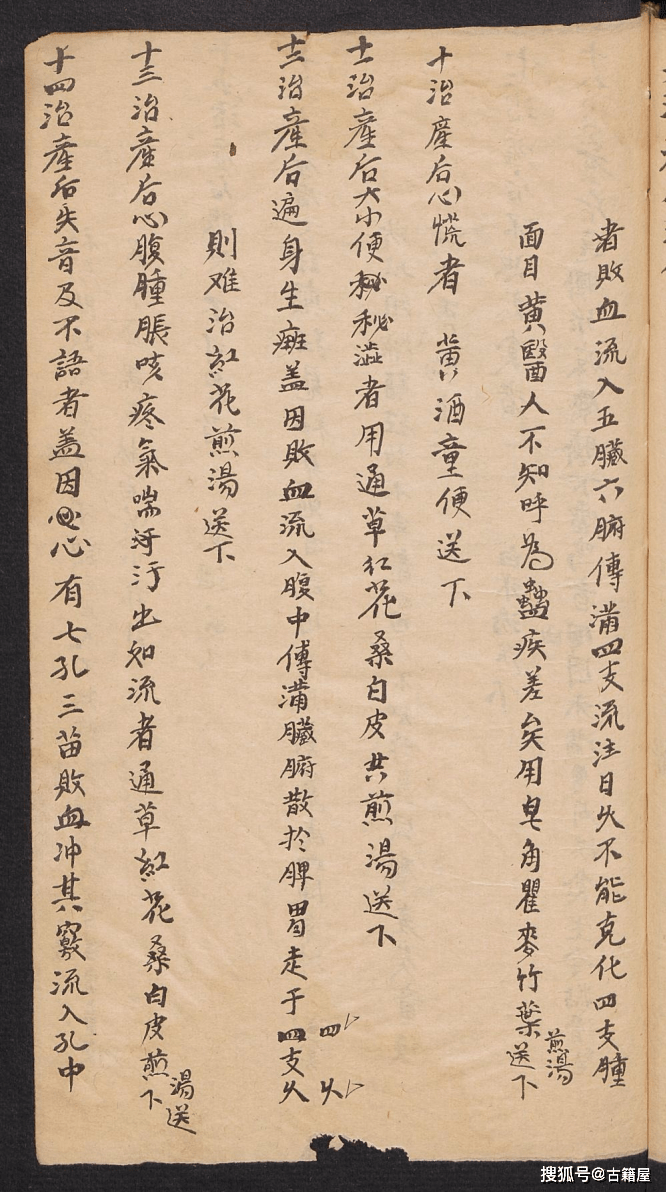 者敗血流入五臟六腑傳滿四支流注日久不能克化四支腫
面目黄醫人不知呼為蠱疾差矣用皂角瞿麥竹葉煎湯送下
十治產后心慌者 黄酒童便送下
十一治產后大小便秘澁者用通草紅花桑白皮共煎湯送下
十二治產后遍身生癍盖因敗血流入腹中傳滿臟腑散扵脾胃走于四支久
四 久
則难治紅花煎湯送下
十三治產后心腹腫脹咳疼氣喘汙出如流者通草紅花桑白皮煎湯送下
十四治產后失音及不語者盖因心有七孔三苗敗血冲其竅流入孔中
搜狐号@古籍屋